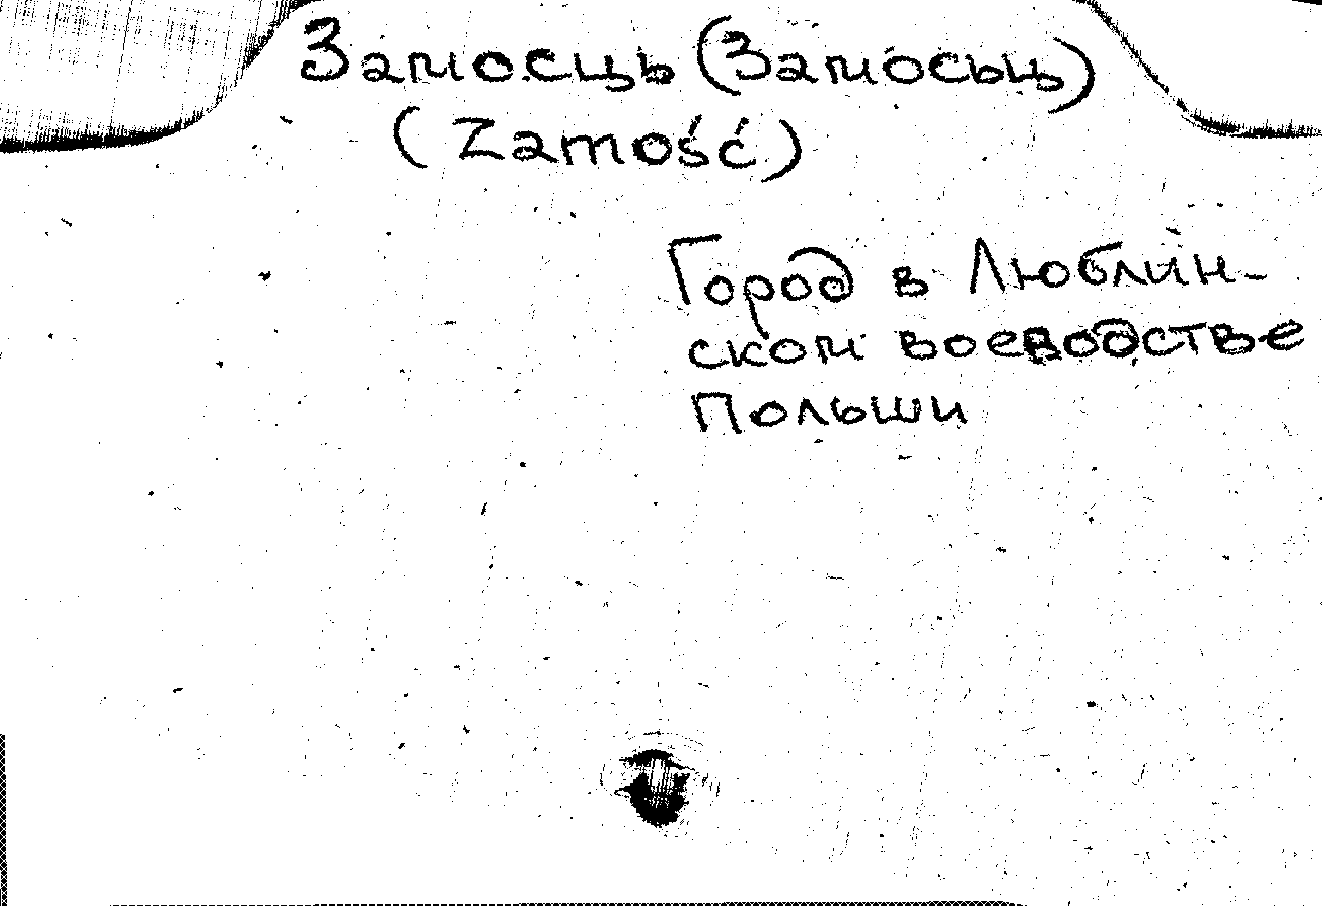 Замосць (Замосьц)
(Zamość)
Город в Люблин-
ском воеводстве
Польши